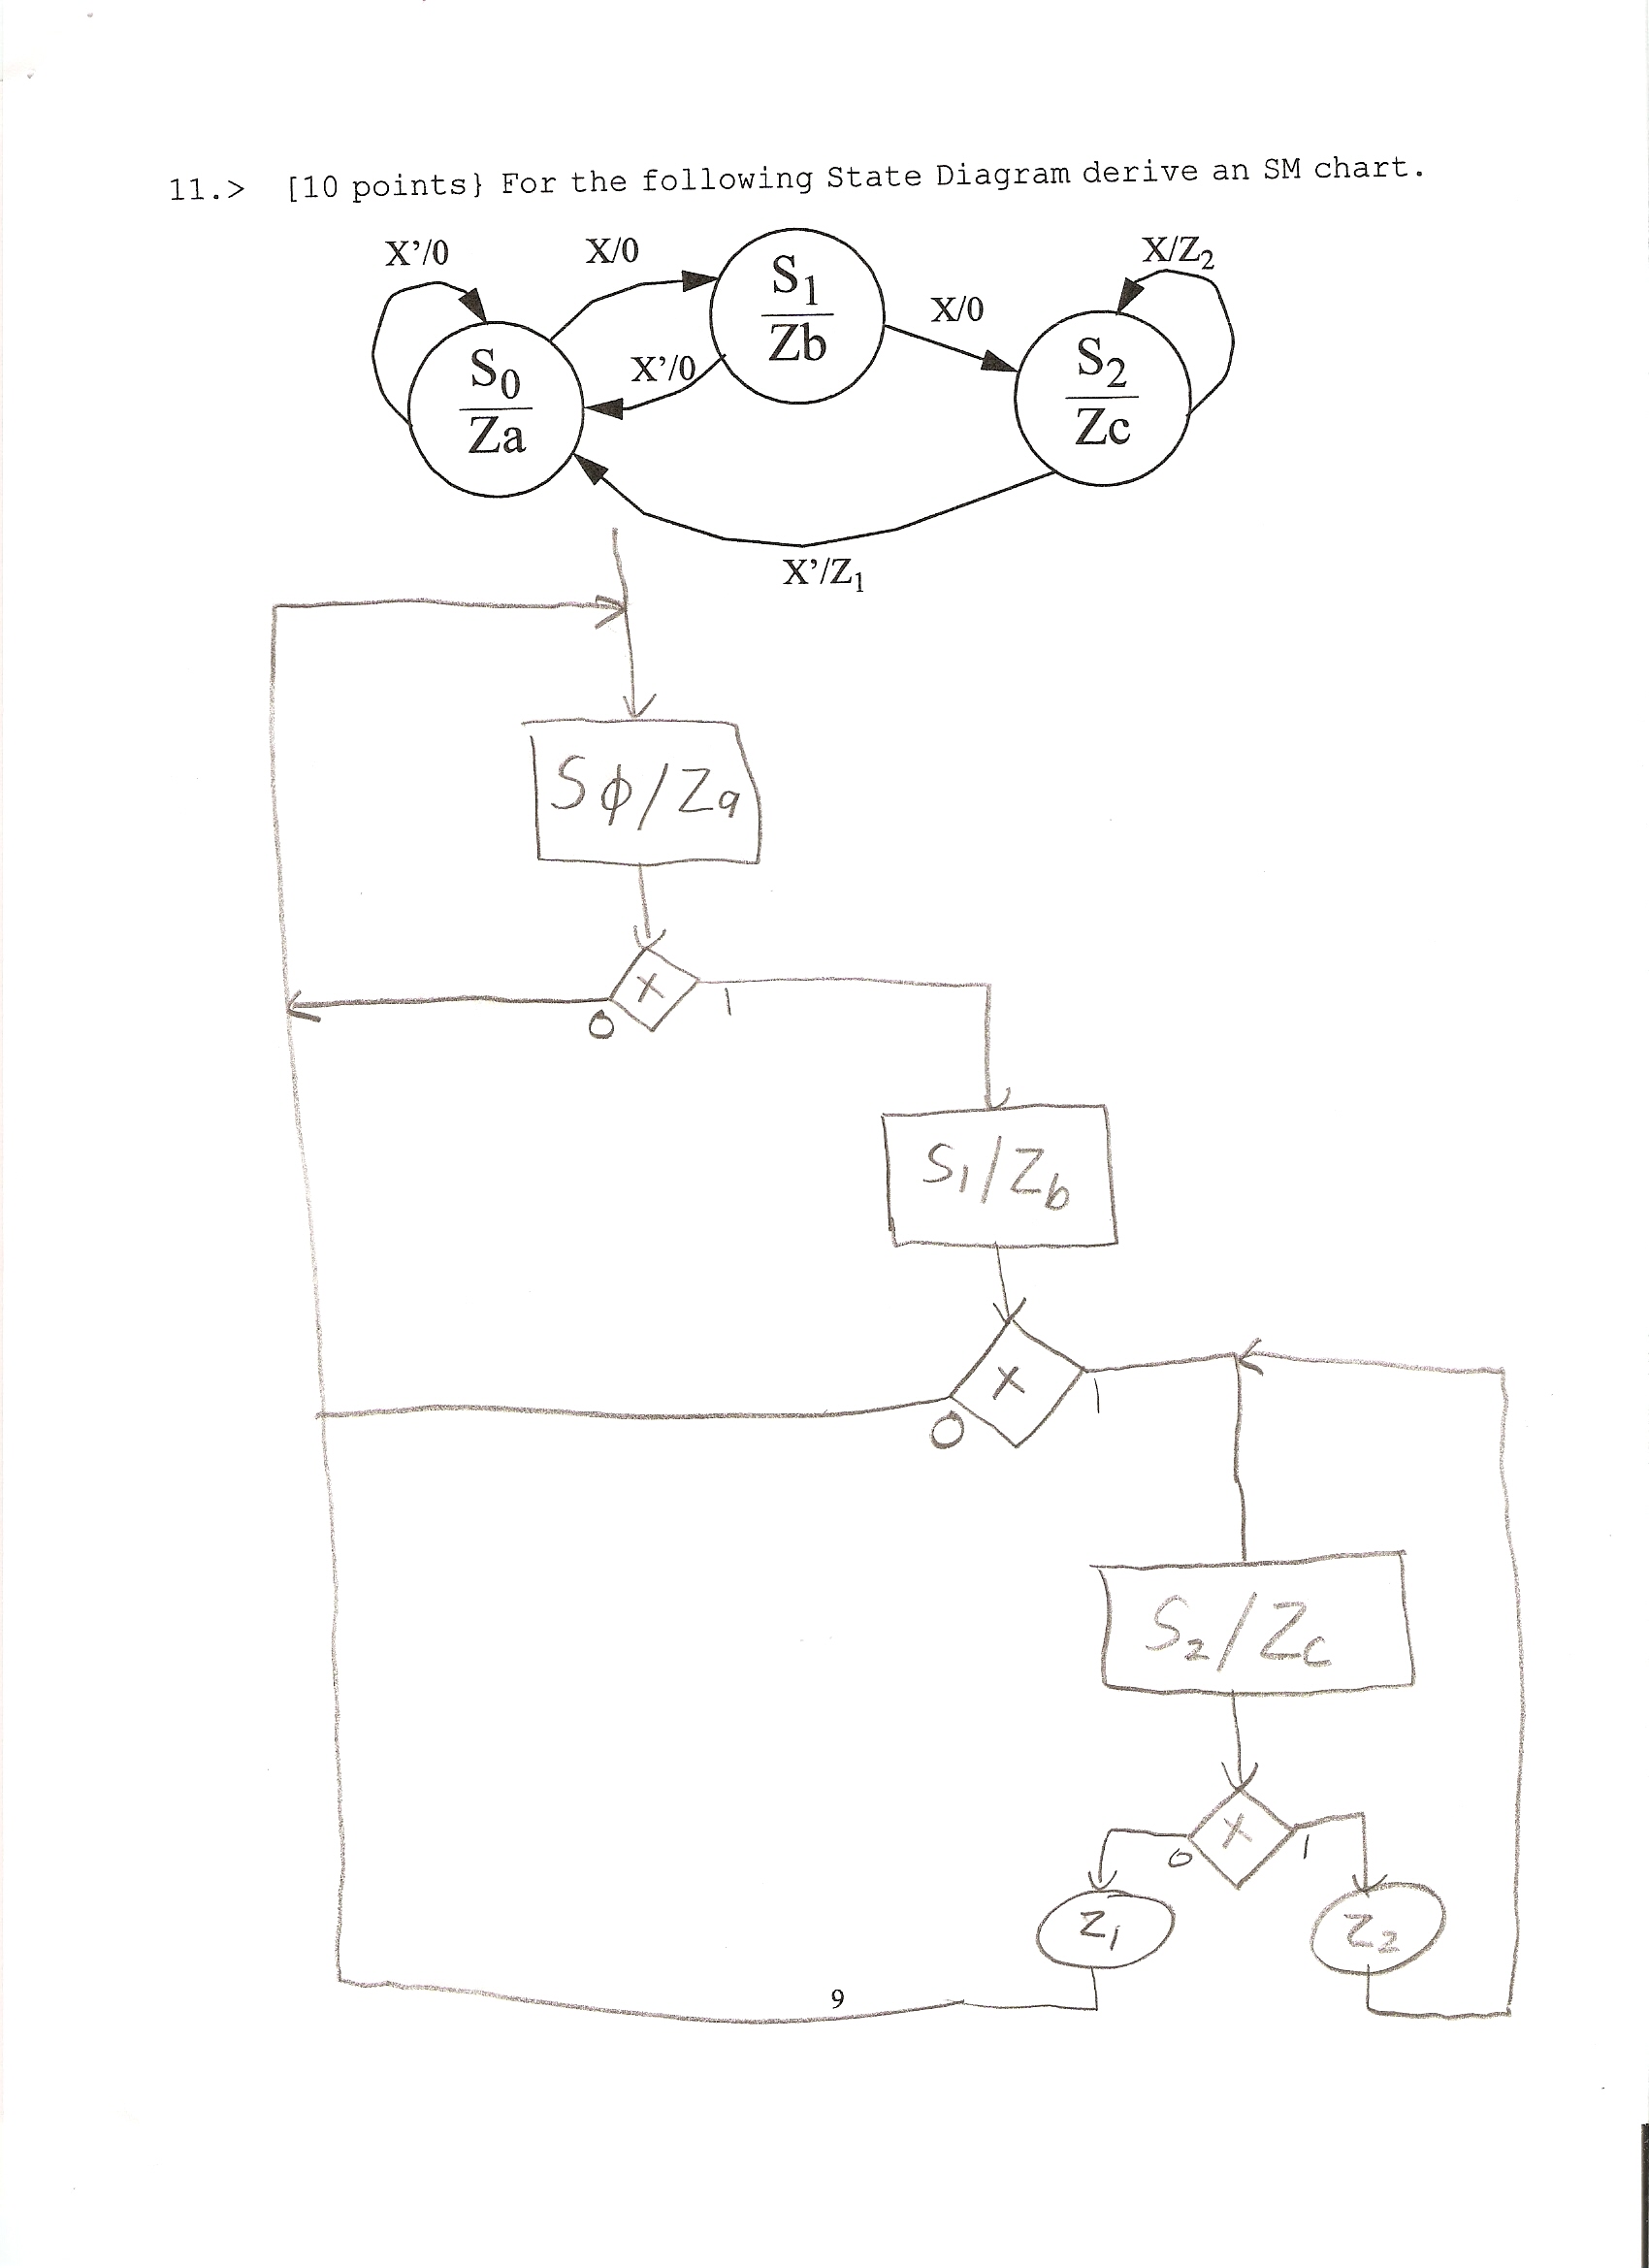 11.> [10 points} For the following State Diagram derive an SM chart.
X’/0 X/0 X/Z2
S1
Zb
X/0
X’/0
S0
Za
S2
Zc
X’/Z1
Sϕ/Za
X
0 1
S1/Zb
X
0 1
S2/Zc
X
0 1
Z1 Z2
9